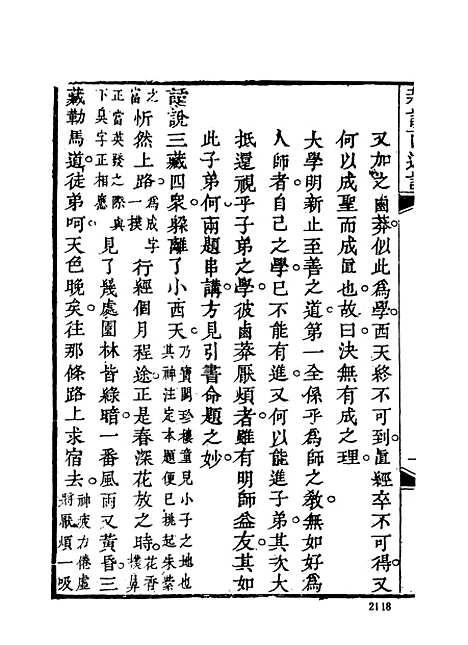 又加之鹵莽似此為學西天終不可到眞經卒不可得又
何以成聖而成眞也故曰決無有成之理
大學明新止至善之道第一全係乎為師之教無如好為
人師者自己之學已不能有進又何以能進子弟其次大
抵還視乎子弟之學彼鹵莽厭煩者雖有明師益友其如
此子弟何兩題串講方見引書命題之妙
話說三藏四衆躲離了小西天乃寶閣珍樓童兒小子之地也其神注定本題便已挑起朱紫
之當忻然上路一撲為成字行經個月程途正是春深花放之時花香撲鼻
正當英發之際與下臭字正相應見了幾處園林皆綠暗一番風雨又黃昏三
藏勒馬道徒弟呵天色晚矣往那條路上求宿去神疲力倦虛將厭煩一吸
2118